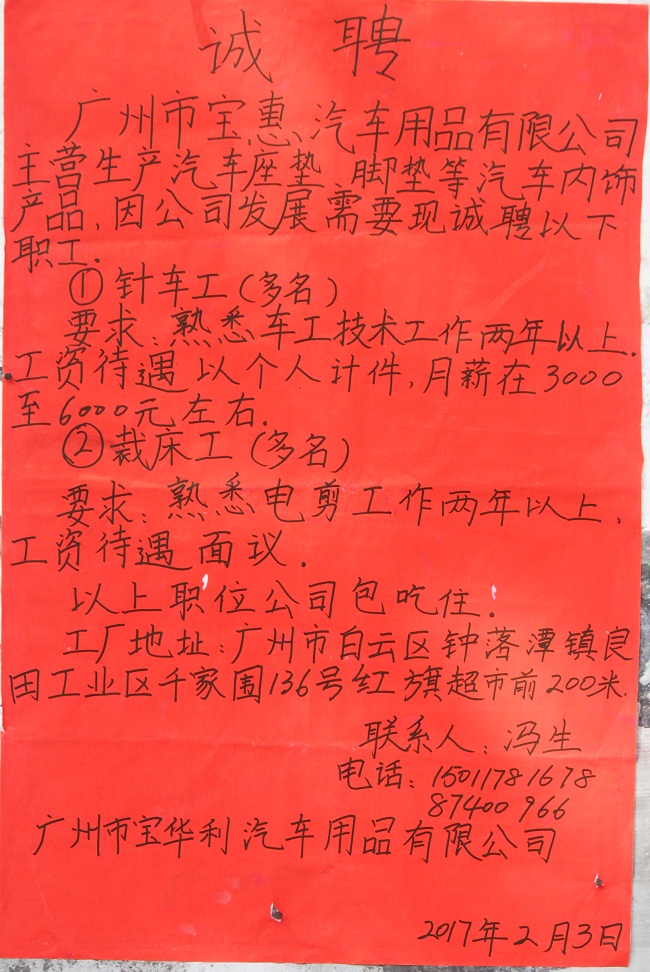 诚 聘
广州市宝惠汽车用品有限公司
主营生产汽车座垫、脚垫等汽车内饰
产品,因公司发展需要现诚聘以下
职工.
① 针车工(多名)
要求:熟悉车工技术工作两年以上.
工资待遇以个人计件,月薪在3000
至6000元左右.
② 裁床工(多名)
要求:熟悉电剪工作两年以上、
工资待遇面议.
以上职位公司包吃住.
工厂地址:广州市白云区钟落潭镇良
田工业区千家围136号红旗超市前200米.
联系人:冯生
电话:15011781678
87400966
广州市宝华利汽车用品有限公司
2017年2月3日